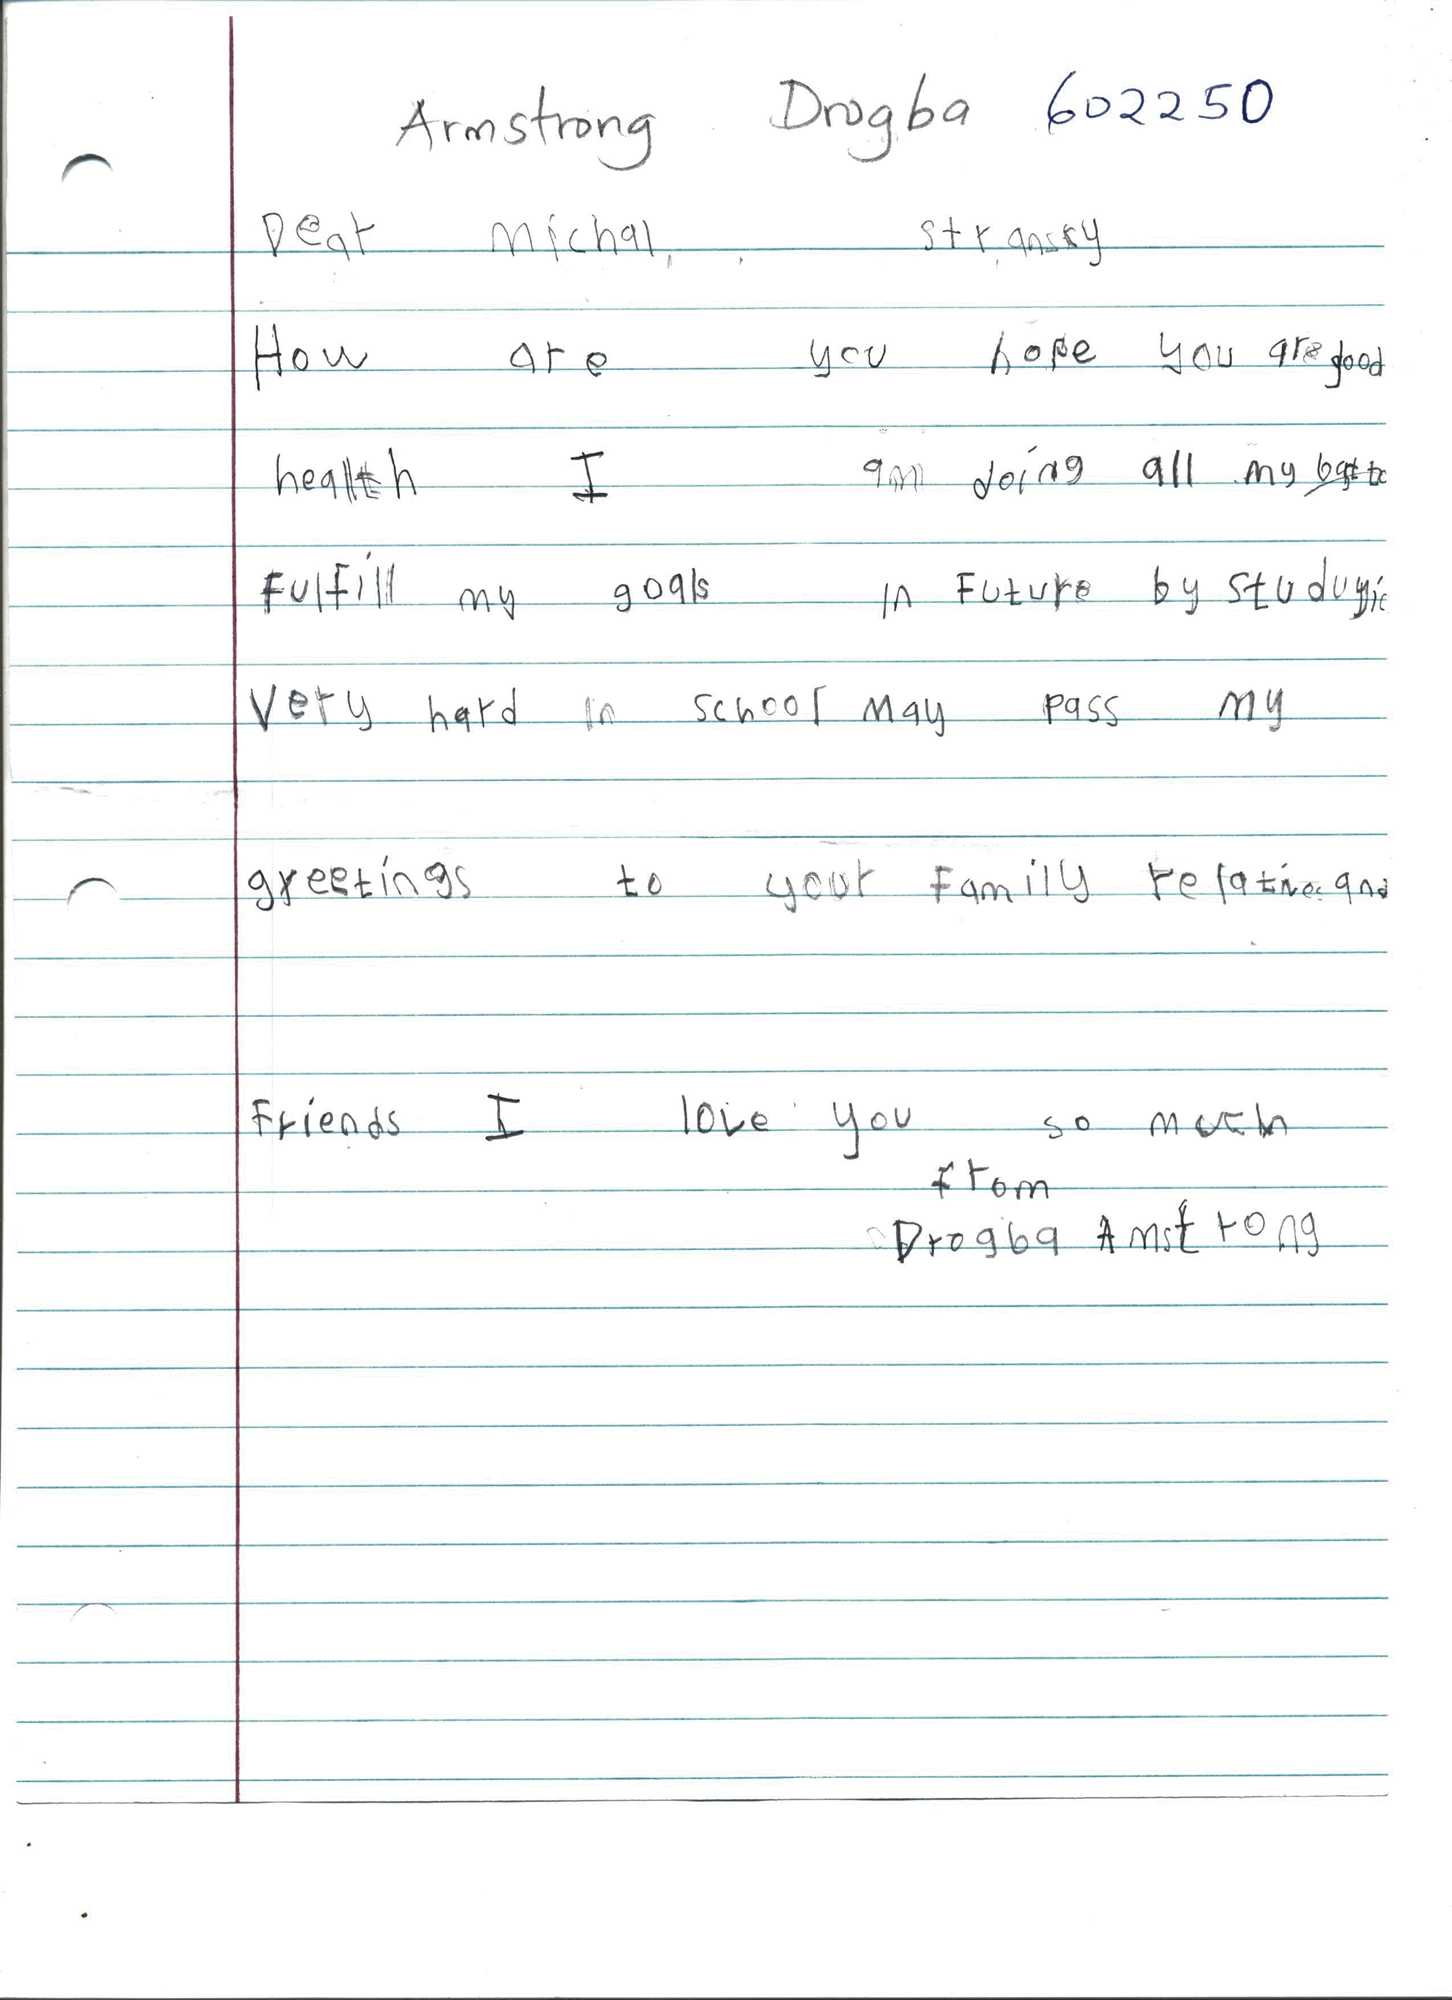 Armstrong Drogba 602250
Dear Michal, Stransky
How are you hope you are good
health I am doing all my best to
Fulfill my goals in Future by studuyi
Very hard in school May pass my
greetings to your Family relative and
Friends I love you so much
From
Drogba Amstrong